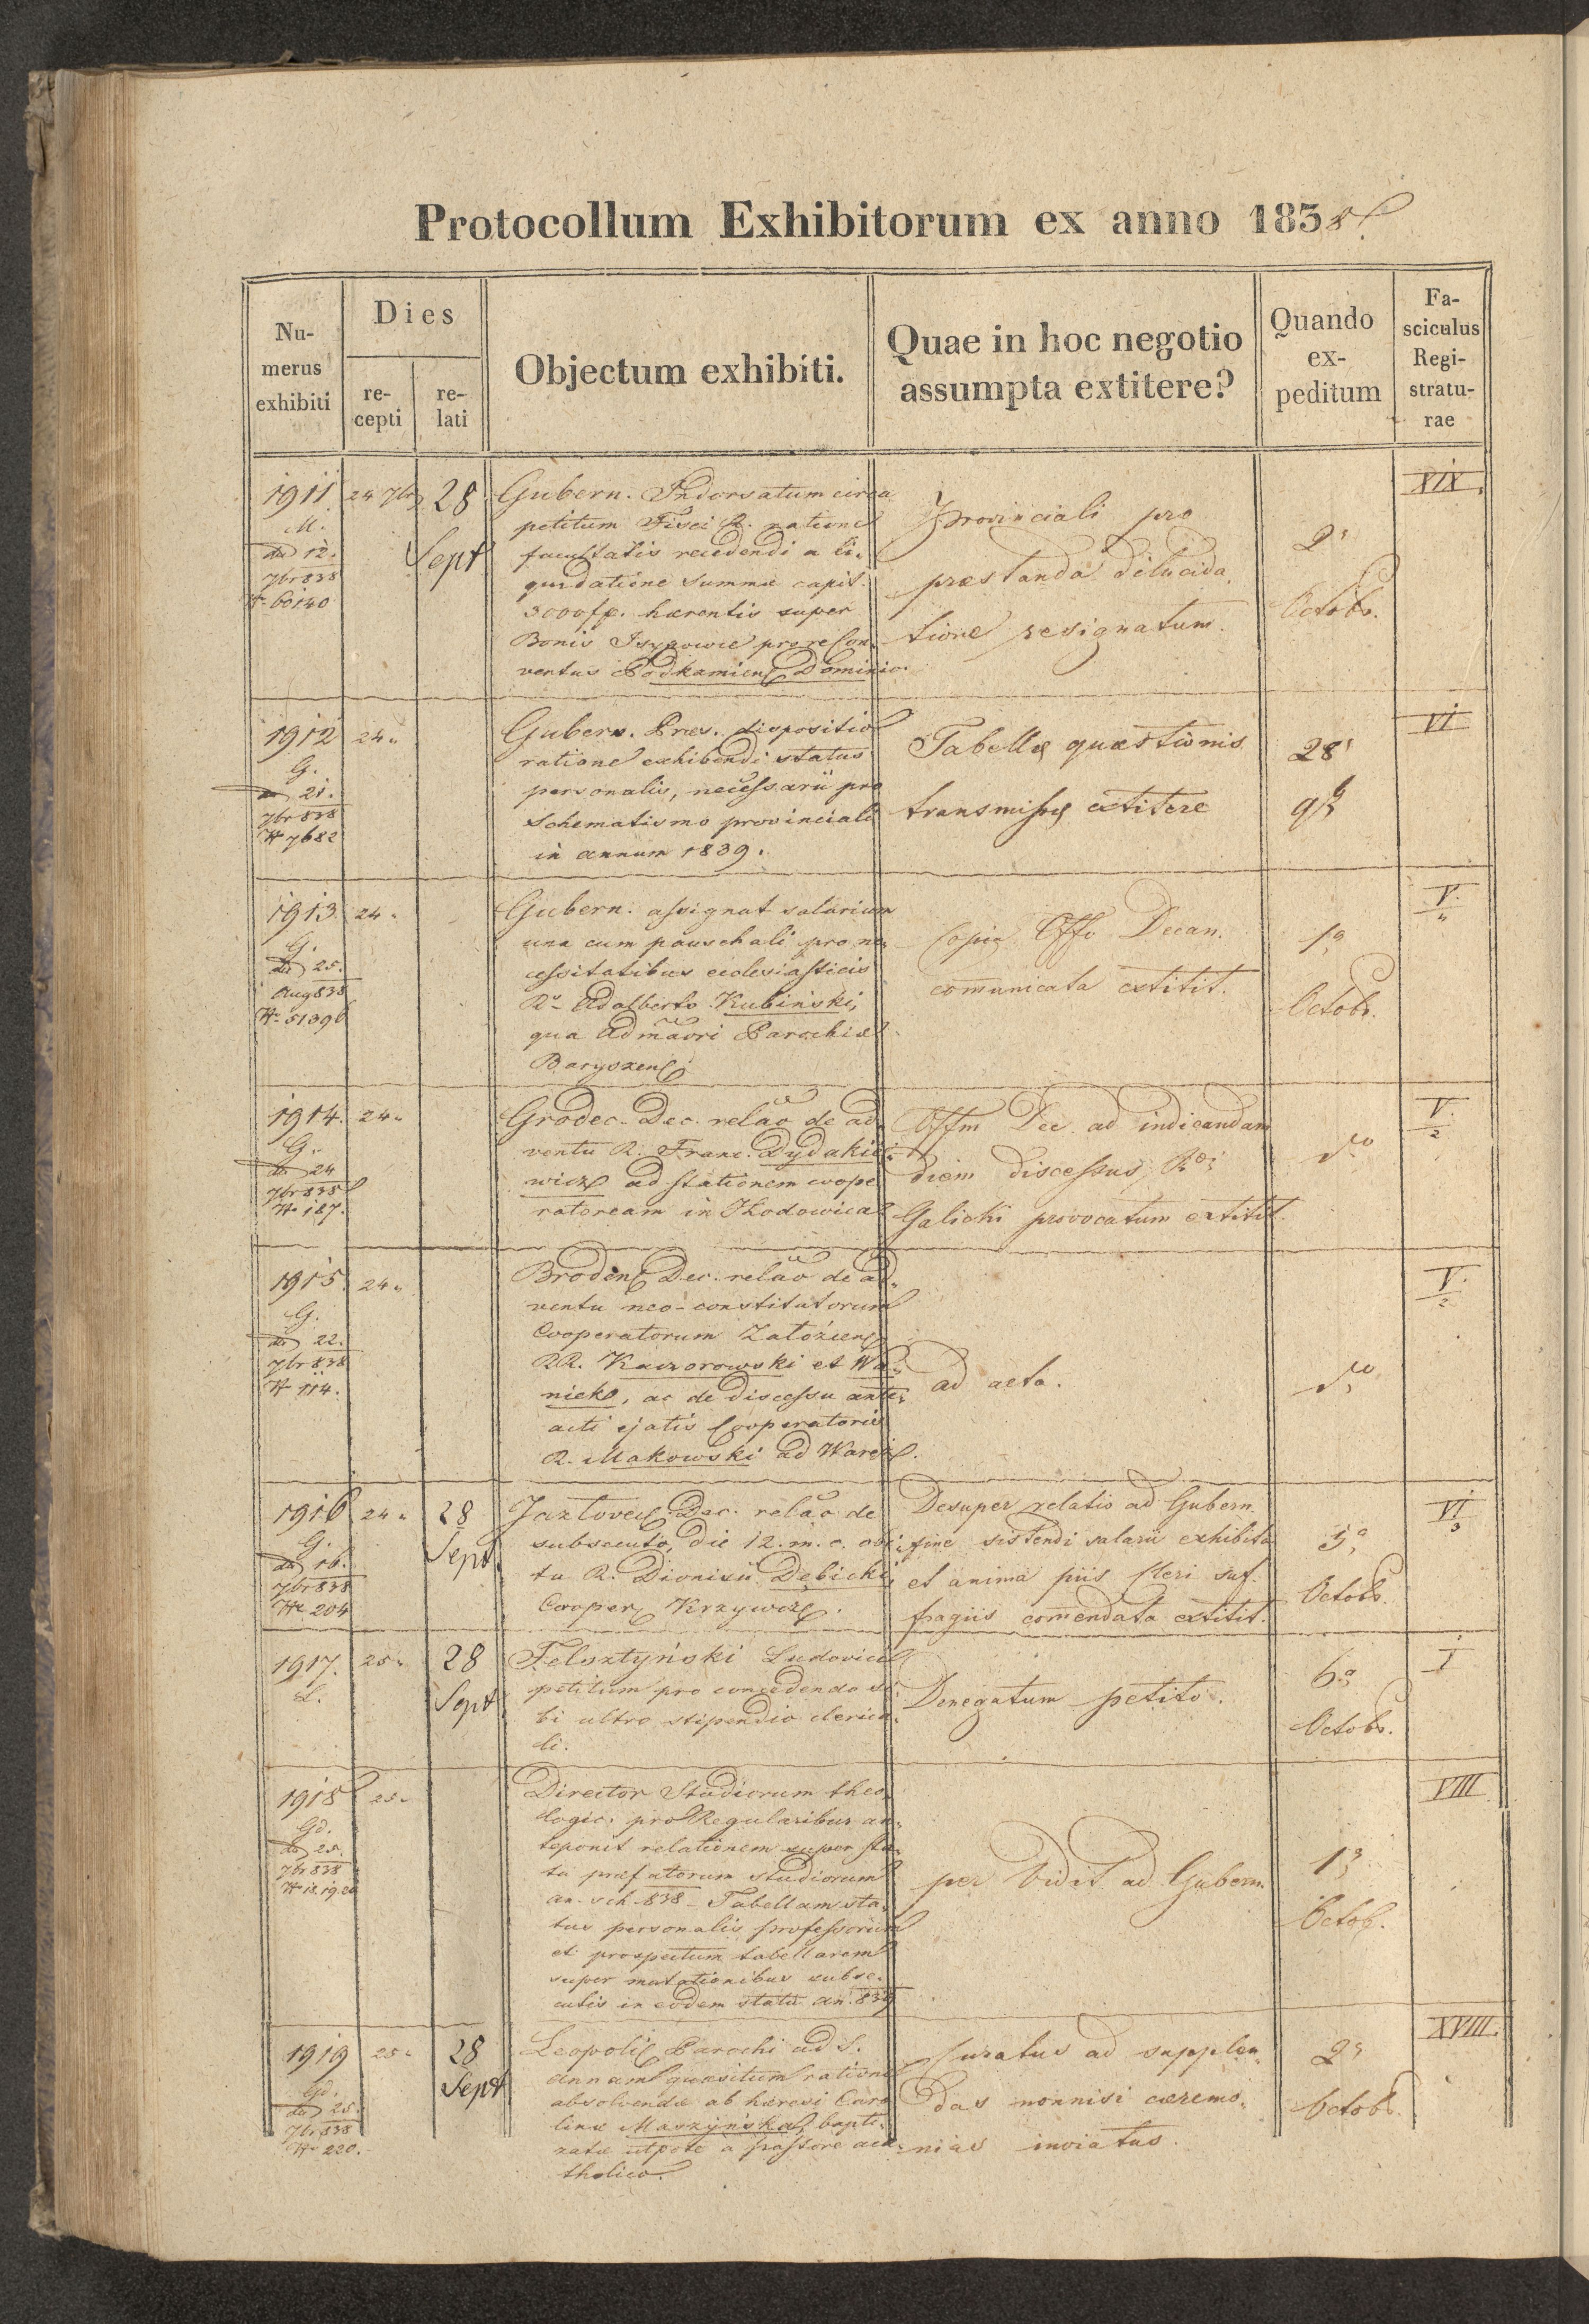 Protocollum Exhibitorum ex anno 1838.
Nu-
merus
exhibiti
Dies
re-
cepti
re-
lati
Objectum exhibiti.
Quae in hoc negotio
assumpta extitere?
Quando
ex-
peditum
Fa-
sciculus
Regi-
stratu-
rae
1911
M.
12.
7br 838
N 60140
24 7br
28
Sept
Gubern. Indorsatum circa
petitum Fisci R. ratione
facultatis recedendi a li-
quidatione summæ capit.
3000 fr. hærentis super
Bonis Isypowce pro re Con-
ventus Podkamien Dominic.
Provinciali pro
præstanda dilucida
tione resignatum.
2
Octob.
XIX.
1912
G.
21.
7br 838
N 7682
24
Gubern. Præs. dispositio
ratione exhibendi status
personalis, necessarii pro
Schematismo provinciali
in annum 1839.
Tabellæ quæstionis
transmissæ extitere
28
9
VI
1913.
G.
25.
Aug 838
N 51396
24
Gubern. assignat salarium
una cum pauschali pro ne-
cessitatibus ecclesiasticis
R. Adalberto Kubiński,
qua Admãori Parochiæ
Baryszen
Copia Offo Decan.
com̃unicata extitit.
1
Octob.
V.
1914.
G.
24
7br 838
N 127.
24
Grodec. Dec. relão de ad
ventu R. Franc. Dydakie-
wicz ad stationem coope
ratoream in Hodowica
Offm Dec ad indicandam
diem discessus R
Galicki provocatum extitit.
do
V.
2
1915
G.
22.
7br 838
N 114.
24
Broden Dec. relão de ad-
ventu neo-constitutorum
Cooperatorum Załoźien
RR. Kaczorowski et Wa-
nieke, ac de discessu ante-
acti ejatis Cooperatoris
R. Makowski ad Waręż.
ad acta.
do
V.
2
1916
G.
16.
7br 838
N 204
24
28
Sept.
Jazlovec Dec. relão de
subsecuto, die 12. m. c. obi-
tu R. Dionisii Dębicki
Cooper Krzywcz.
Desuper relatio ad Gubern.
fine sistendi salarii exhibita
et anima piis Cleri suf-
fragiis com̃endata extitit.
5
Octob.
VI
3
1917.
L.
25
28
Sept
Felsztyński Ludovici
petitum pro concedendo si
bi ultro stipendio clerica-
li.
Denegatum petito.
6
Octob.
I
1918
Gd.
25.
7br 838
N 18.19.20
25
Director Studiorum theo-
logic. pro Regularibus an-
teponit relationem super sta-
tu præfatorum studiorum
an. sch 838 - Tabellam sta-
tus personalis professorum
et prospectum tabellarem
super mutationibus subse-
cutis in eodem statu an. 839
per Vidit ad Gubern.
1
Octob.
VIII
1919
Gd.
25.
7br 838
N 220.
25
28
Sept
Leopoli Parochi ad S.
Annam quæsitum ratione
absolvendæ ab hæresi Caro
linæ Maszyńska, bapti-
zatæ utpote a pastore aca-
tholico.
Curatus ad supplen-
das nonnisi cæremo-
nias inviatus.
2
Octob.
XVIII.